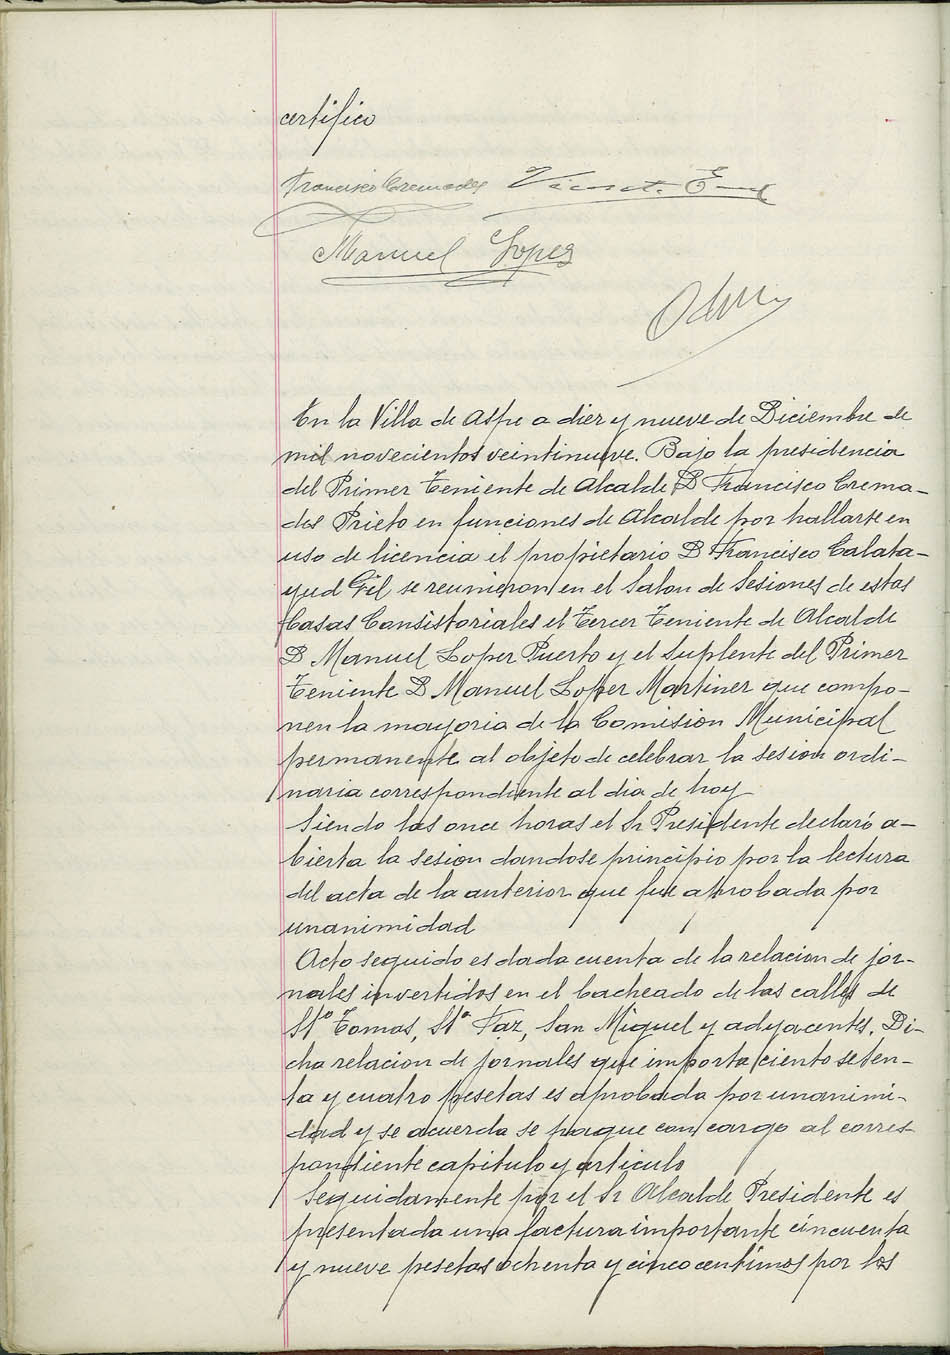 certifico
Francisco Cremades
Manuel Lopez
En la Villa de Aspe a diez y nueve de Diciembre de
mil novecientos veintinueve. Bajo la presidencia
del Primer Teniente de Alcalde D Francisco Crema-
des Prieto en funciones de Alcalde por hallarse en
uso de licencia el propietario D Francisco Calata-
yud Gil se reunieron en el Salon de Sesiones de estas
Casas Consistoriales el Tercer Teniente de Alcalde
D Manuel Lopez Puerto y el Suplente del Primer
Teniente D Manuel Lopez Martinez que compo-
nen la mayoria de la Comision Municipal
permanente al objeto de celebrar la sesion ordi-
naria correspondiente al dia de hoy
Siendo las once horas el Sr Presidente declaró a-
bierta la sesion dandose principio por la lectura
del acta de la anterior que fue aprobada por
unanimidad
Acto seguido es dada cuenta de la relacion de jor-
nales invertidos en el bacheado de las calles de
Stº Tomas, Stª Faz, San Miguel y adyacentes. Di-
cha relacion de jornales que importa ciento seten-
ta y cuatro pesetas es aprobada por unanimi-
dad y se acuerda se pague con cargo al corres-
pondiente capitulo y articulo
Seguidamente por el Sr Alcalde Presidente es
presentada una factura importante cincuenta
y nueve pesetas ochenta y cinco centimos por los